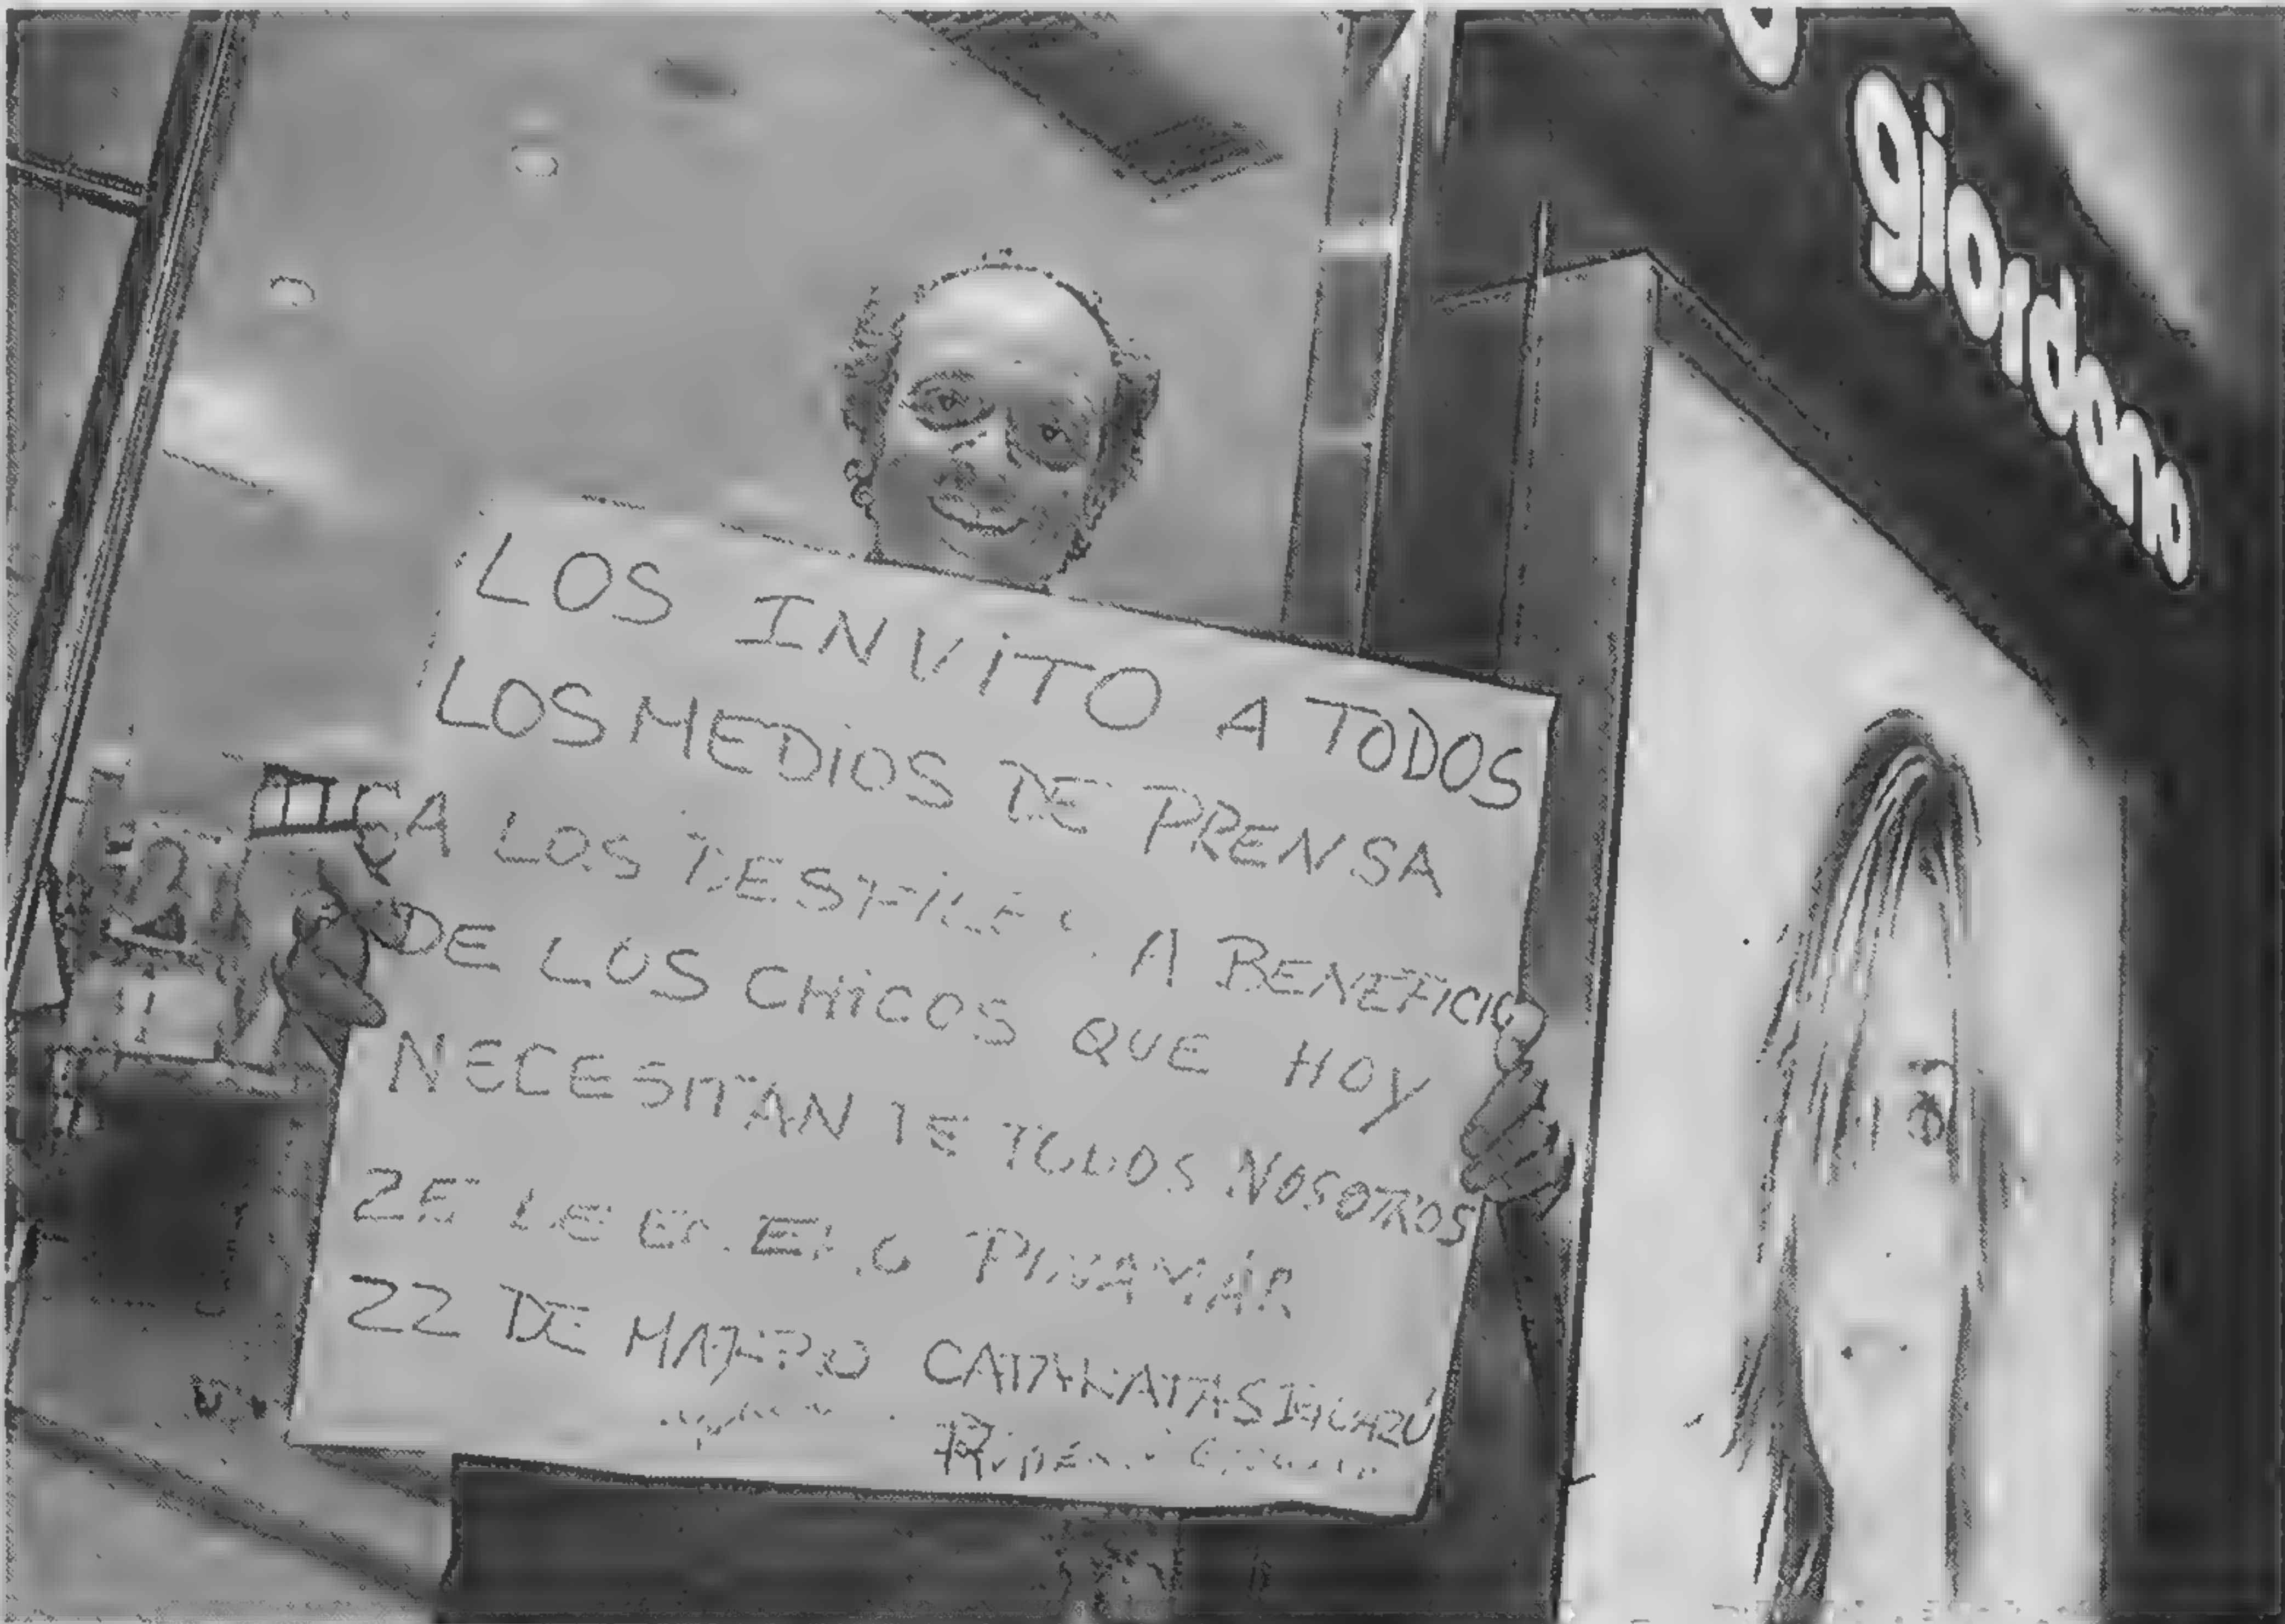 giordano
LOS INVITO A TODOS
LOS MEDIOS DE PRENSA
A LOS DESFILES A BENEFICIO
DE LOS CHICOS QUE HOY
NECESITAN DE TODOS NOSOTROS
25 DE ENERO PINAMAR
22 DE CATARATAS IGUAZÚ